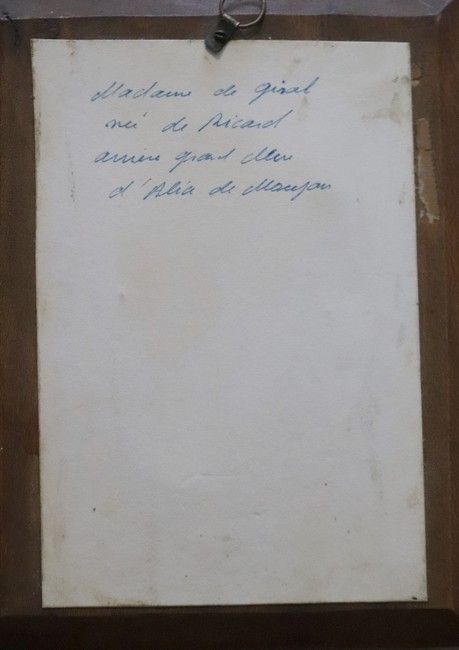 Madame de Giral
née de Ricard
arrière grand Mère
d'Alix de